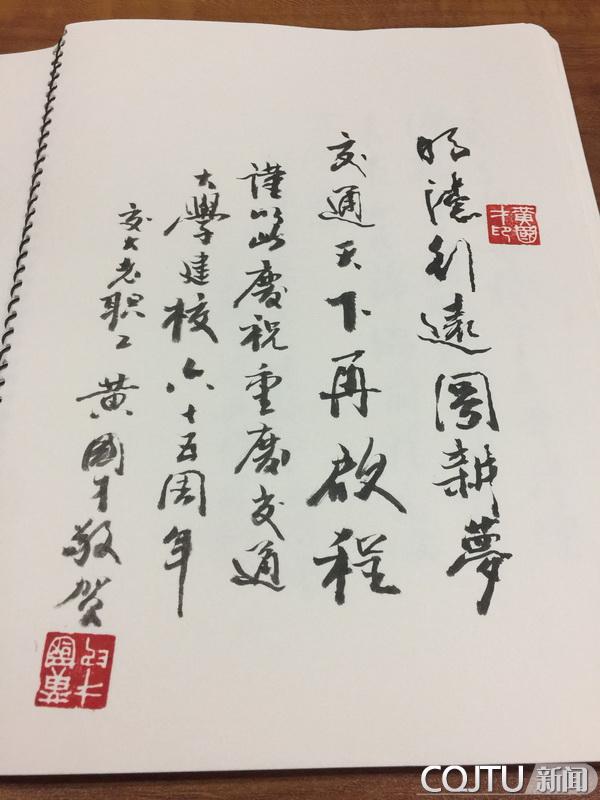 黄國才印
明德行遠圓新夢
交通天下再啟程
謹以此慶祝重慶交通
大學建校六十五周年
交大老职工 黄國才敬贺
黄國才印
CQJTU 新闻